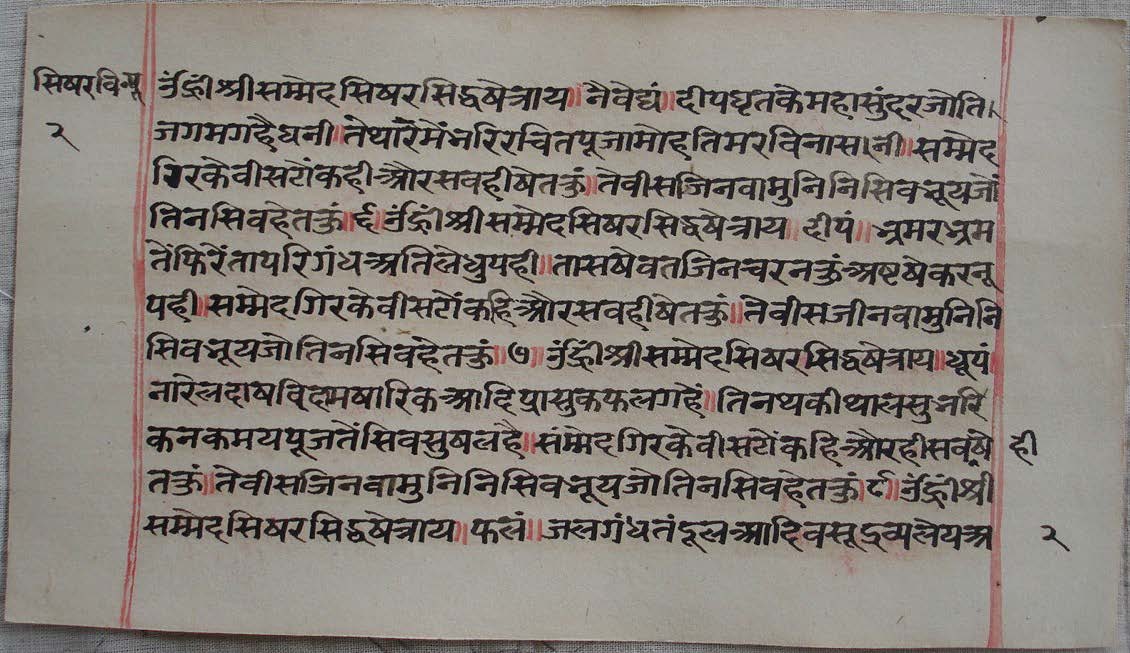 सिषरविन्पू
२
उंह्रीं श्रीसम्मेदसिषरसिद्धषेत्राय॥ नैवेद्यं॥ दीपघृतकैमहासुंदरजोति।
जगमगहैघनी॥ तेथारमेंभरिरचितपूजामोहतिमरविनासनी॥ सम्मेद
गिरकेवीसटोंकहीऔरसवहीषेतकुं॥ तेवीसजिनवामुनिनिसिवभूयजों
तिनसिवहेतकुं॥ ६॥ उंह्रीं श्रीसम्मेदसिषरसिद्धषेत्राय॥ दीपं॥ भ्रमरभ्रम
तेंफिरैंतापरिगंधअतिलेधुपही॥ तासषेवतजिनचरनकुंअष्टषेकरनू
पही॥ सम्मेदगिरकेवीसटोंकहिऔरसवहीषेतकुं॥ तेवीसजीनवामुनिनि
सिवभूयजोतिनसिवहेतकुं॥ ७॥ उंह्रीं श्रीसम्मेदसिषरसिद्धषेत्राय॥ धूपं
नारेलदाषविदामषारिकआदिप्रासुकफलगहें॥ तिनथकीथालसुभरि
कनकमयपूजतेंसिवसुषलहै॥ संम्मेदगिरकेवीसटोंकहिऔरहीसवषे ही
तकुं॥ तेवीसजिनवामुनिनिसिवभूयजोतिनसिवहेतकुं॥ ८॥ उंह्रीं श्री
सम्मेदसिषरसिद्धषेत्राय॥ फलं॥ जलगंधतंदूलआदिवसूद्रव्यलेयअ
२